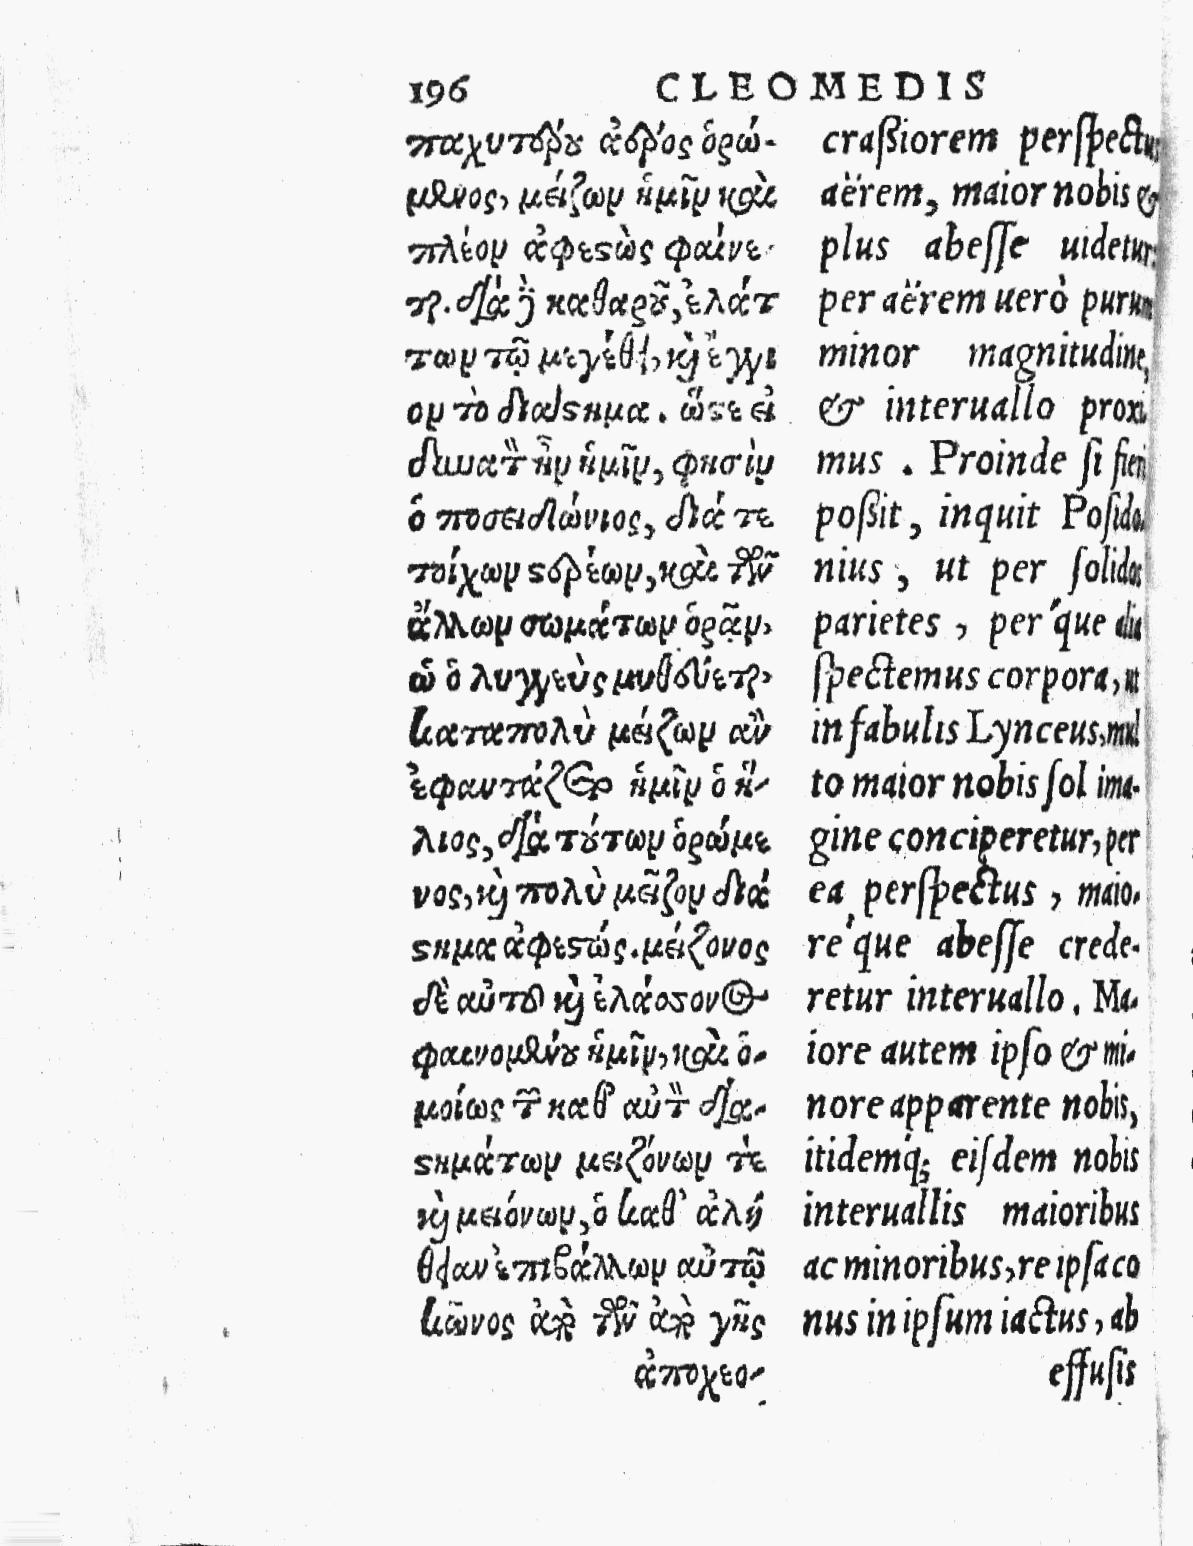 196 CLEOMEDIS
παχυτέρου ἀέρος ὁρώ-
μενος, μείζων ἡμῖν καὶ
πλέον ἀφεστὼς φαίνε-
ται. διὰ δὲ καθαροῦ, ἐλάτ
των τῷ μεγέθει, καὶ ἔγγι
ον τὸ διάστημα. ὥστε εἰ
δυνατὸν ἦν ἡμῖν, φησὶν
ὁ ποσειδώνιος, διά τε
τοίχων στερέων, καὶ τῶν
ἄλλων σωμάτων ὁρᾷν,
ὡ ὁ λυγγεὺς μυθεύεται,
καταπολὺ μείζων ἂν
ἐφαντάζετο ἡμῖν ὁ ἥ-
λιος, διὰ τούτων ὁρώμε
νος, καὶ πολὺ μεῖζον διά
στημα ἀφεστώς. μείζονος
δὲ αὐτοῦ καὶ ἐλάσσονος
φαινομένου ἡμῖν, καὶ ὁ-
μοίως τῶν καθ' αὐτὸν δια-
στημάτων μειζόνων τὲ
καὶ μειόνων, ὁ καθ' ἀλή
θειαν ἐπιβάλλων αὐτῷ
κῶνος ἀπὸ τῶν ἀπὸ γῆς
ἀποχεο-
craßiorem perſpectus
aërem, maior nobis &
plus abeſſe uidetur:
per aërem uerò purum
minor magnitudine,
& interuallo proxi
mus. Proinde ſi fieri
poßit, inquit Poſido-
nius, ut per ſolidos
parietes, per'que alia
ſpectemus corpora, ut
in fabulis Lynceus, mul
to maior nobis ſol ima-
gine conciperetur, per
ea perſpectus, maio-
re'que abeſſe crede-
retur interuallo. Ma-
iore autem ipſo & mi-
nore apparente nobis,
itidemq́; eiſdem nobis
interuallis maioribus
ac minoribus, re ipſa co
nus in ipſum iactus, ab
effuſis